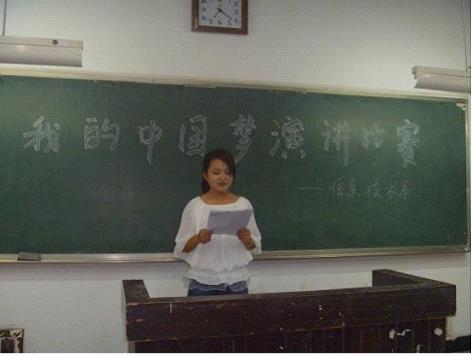 我的中国梦演讲比赛
——信息技术系